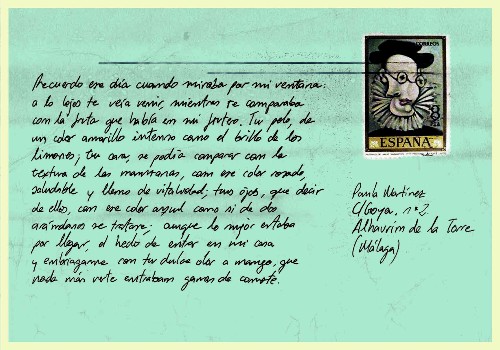 Recuerdo ese día cuando miraba por mi ventana:
a lo lejos te veía venir, mientras te comparaba
con la fruta que había en mi frutero. Tu pelo, de
un color amarillo intenso como el brillo de los
limones; tu cara, se podía comparar con la
textura de las manzanas, con ese color rosado,
saludable y lleno de vitalidad; tus ojos, que decir
de ellos, con ese color azul como si de dos
arándanos se tratase; aunque lo mejor estaba
por llegar, el hecho de entrar en mi casa
y embriagarme con tu dulce olor a mango, que
nada más verte entraban ganas de comerte.
CORREOS
ESPAÑA
Paula Martínez
C/Goya, nº2
Alhaurín de la Torre
(Málaga)